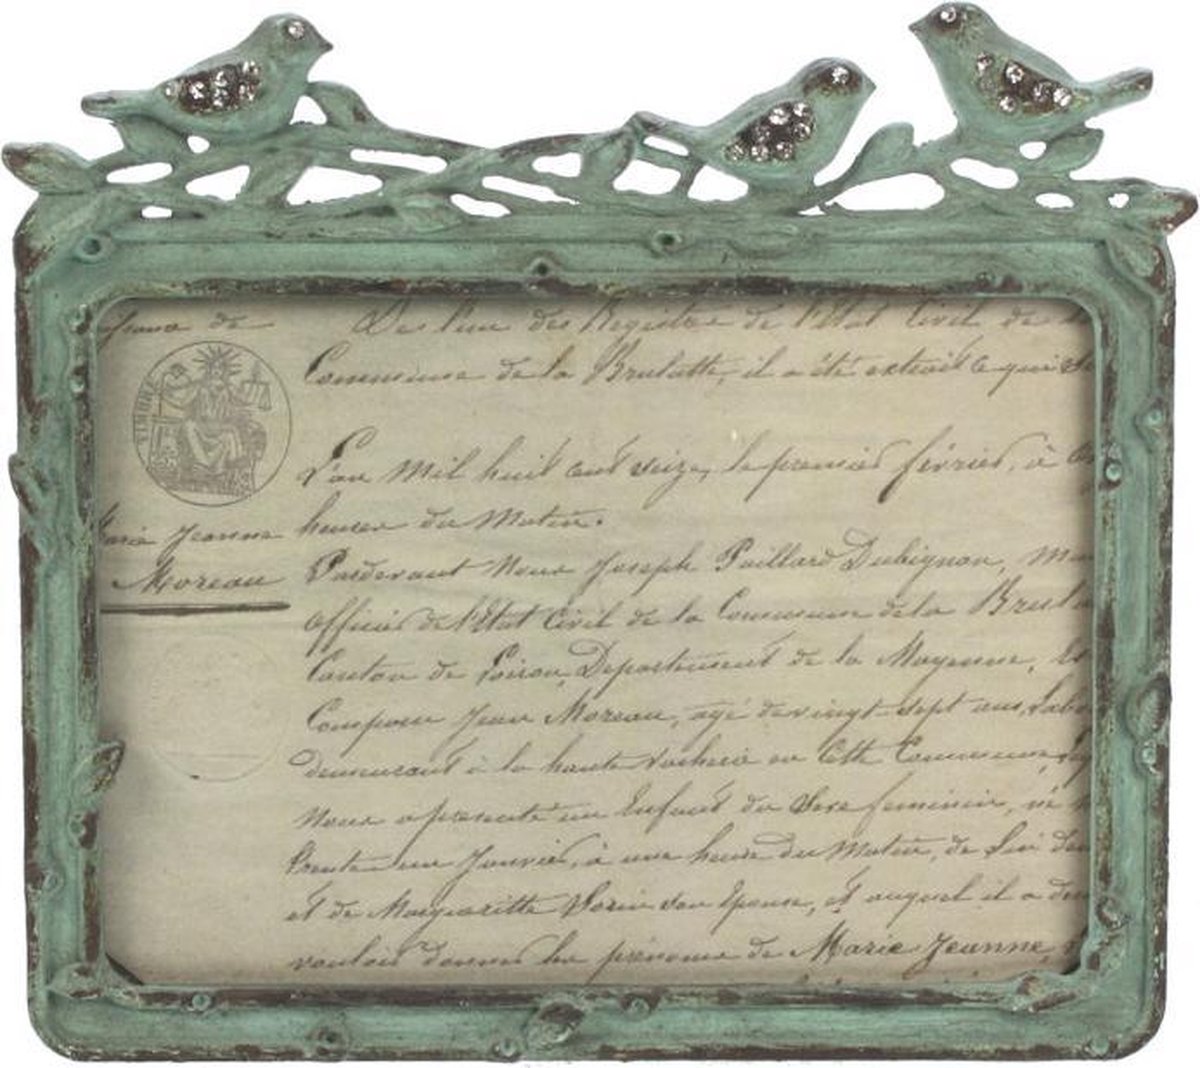 de
Des l'un des Registre de l'Etat Civil de
Commune de la Brulatte, il a été extrait ce qui
TIMBRE
L'an mil huit cent seize, le premier février, à
heures du Matin.
Marie Jeanne
Moreau
Pardevant Nous Joseph Paillard Dubignon,
officier de l'Etat Civil de la Commune de la
Canton de Loiron, Département de la Mayenne, et
Jean Moreau, agé de vingt-sept ans,
demeurant à la haute en cette Commune,
Nous a presenté un Enfant du Sexe feminin, né
trente un Janvier, à une heure du Matin, de lui
et de Margueritte son Epouse, et auquel il a
vouloir donner les prénoms de Marie Jeanne,